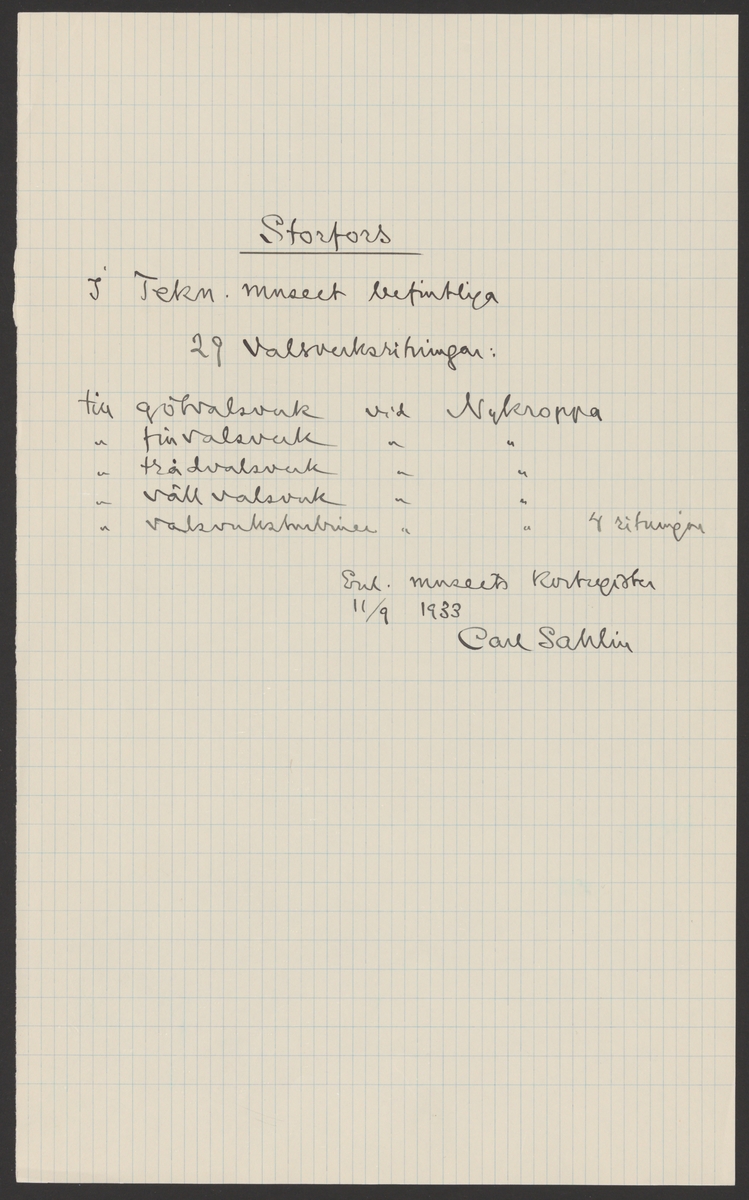 Storfors
I Tekn. museet befintliga
29 valsverksritningar:
till götvalsverk vid Nykroppa
" finvalsverk " "
" trådvalsverk " "
" vällvalsverk " "
" valsverksturbiner " " 4 ritningar
Enl. museets kortregister
11/9 1933
Carl Sahlin